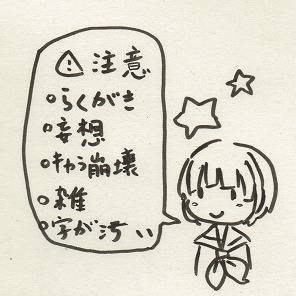 ⚠注意
○らくがき
○妄想
○キャラ崩壊
○雑
○字が汚い